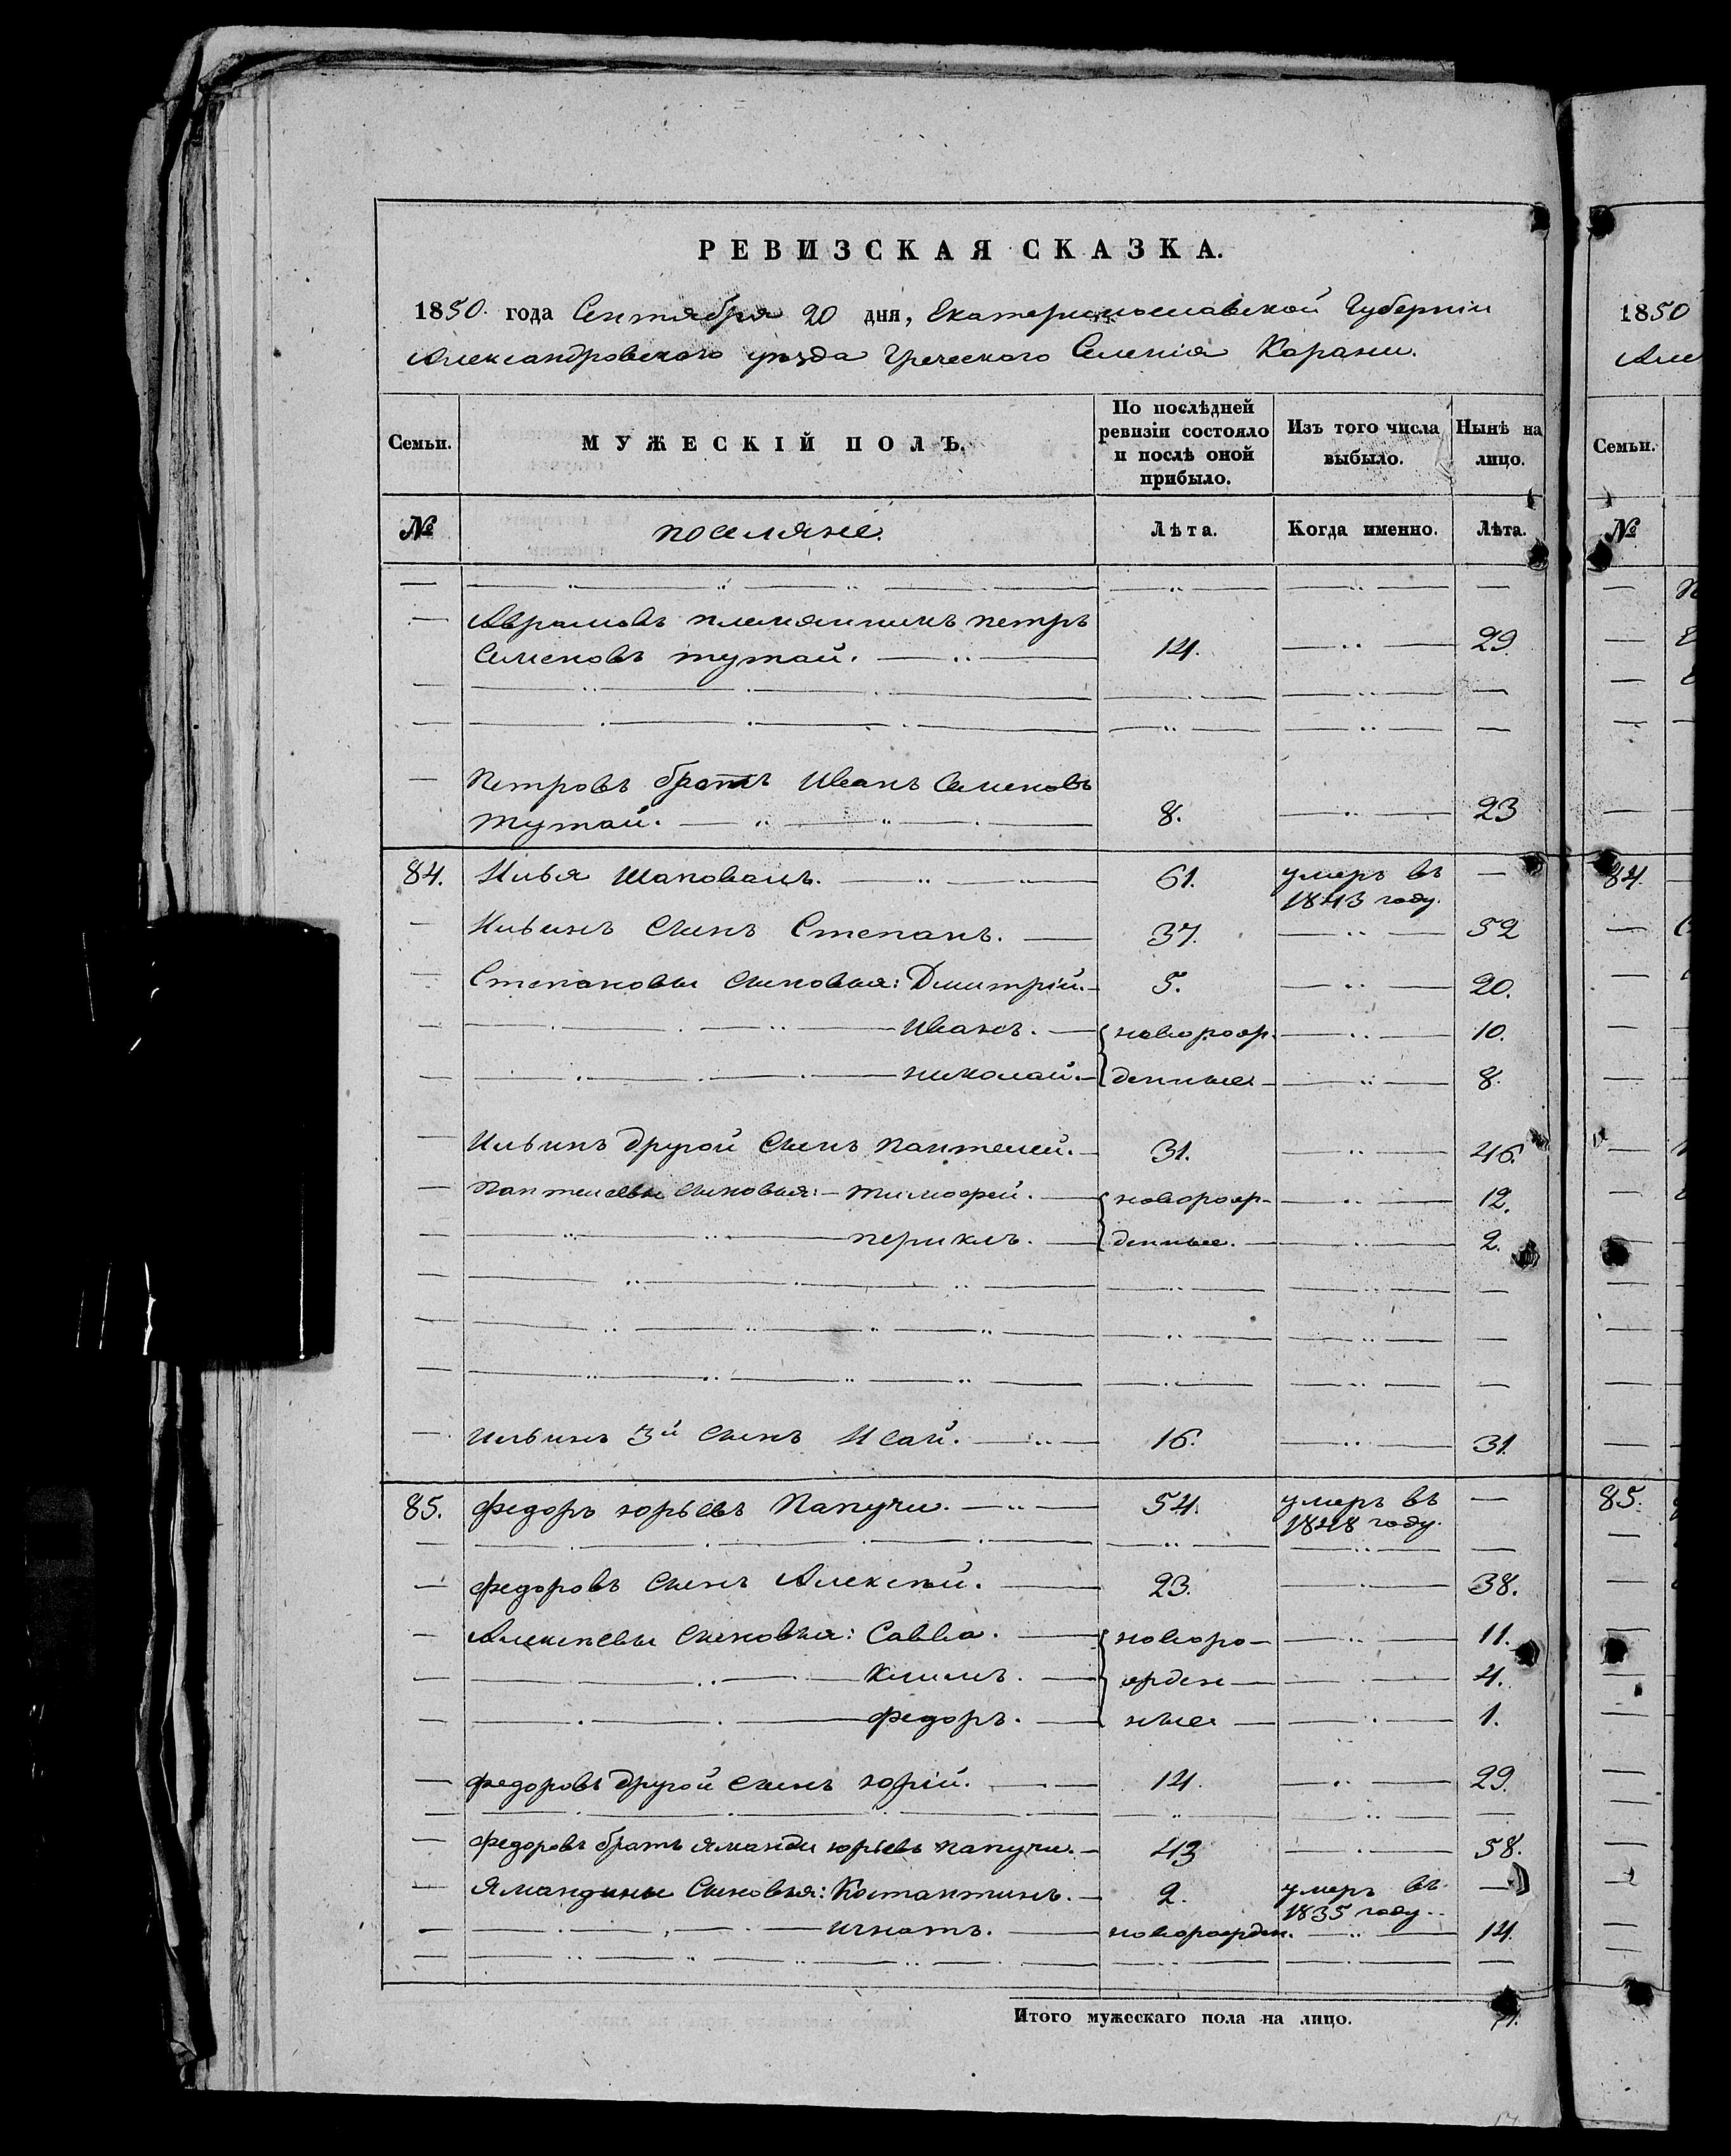 РЕВИЗСКАЯ СКАЗКА.
1850. года Сентября 20 дня, Екатеринославской Губерніи
Александровского уѣзда Греческого Селенія Карани.
Семьи. МУЖЕСКІЙ ПОЛЪ. По послѣдней ревизіи состояло и послѣ оной прибыло. Изъ того числа выбыло. Нынѣ на лицо.
№ поселяне. Лѣта. Когда именно. Лѣта.
Аврамовъ племянникъ петръ
Семеновъ тутай. 14. 29.
Петровъ братъ Иванъ Семеновъ
тутай. 8. 23
84. Илья Шаповалъ. 61. умеръ въ
1843 году.
Ильинъ Сынъ Степанъ. 37. 52
Степановы Сыновья: Дмитрій. 5. 20.
Иванъ. новорож- 10.
николай. денные 8.
Ильинъ другой Сынъ пантелей. 31. 46.
пантелеевы Сыновья: тимофей. новорож- 12.
периклъ. денные. 2.
ильинъ 3й Сынъ Исай. 16. 31.
85. федоръ юрьевъ Папучи. 54. умеръ въ
1848 году.
федоровъ Сынъ Алексѣй. 23. 38.
Алексѣевы Сыновья: Савва. новоро- 11.
Климъ. жден- 4.
федоръ. ные 1.
федоровъ другой Сынъ юрій. 14. 29.
федоровъ братъ яманди юрьевъ папучи. 43 58.
Ямандины Сыновья: Костантинъ. 2. умеръ въ
1835 году.
игнатъ. новорожден. 14.
Итого мужескаго пола на лицо.
1850
Але
Семьи.
№
84.
85.